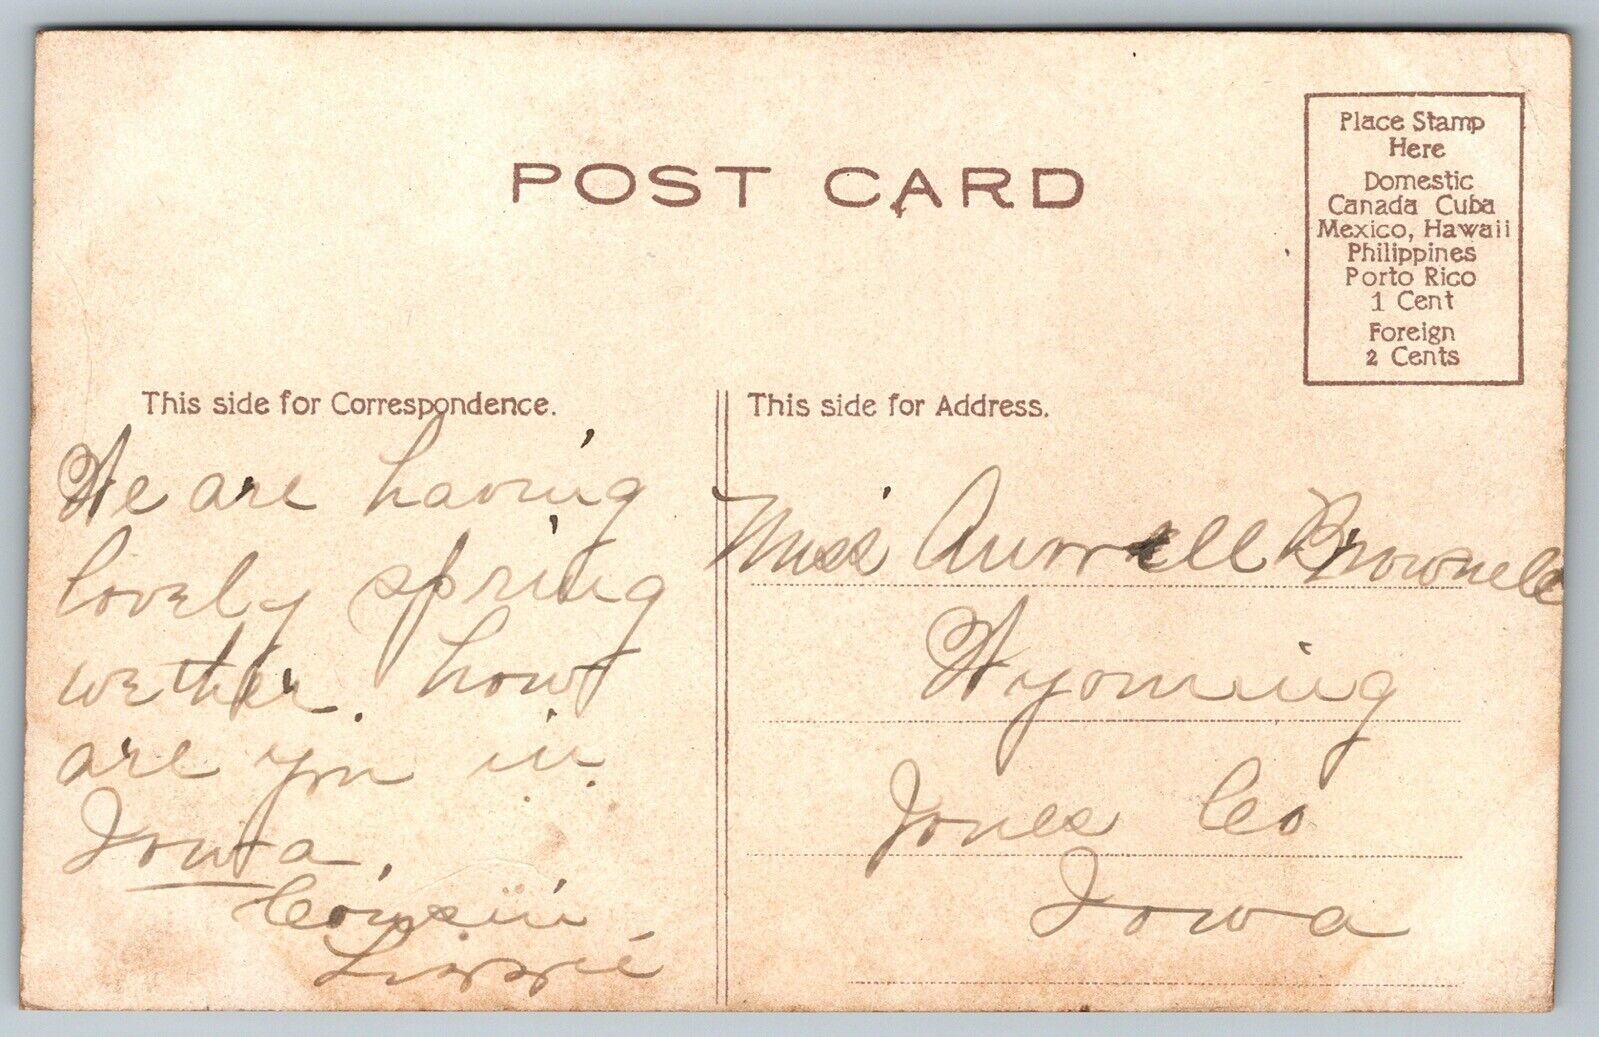 POST CARD
Place Stamp
Here
Domestic
Canada Cuba
Mexico, Hawaii
Philippines
Porto Rico
1 Cent
Foreign
2 Cents
This side for Correspondence.
We are having
lovely spring
wether. how
are you in
Iowa.
Cousin
Lizzie
This side for Address.
Miss Aurrell Brownell
Wyoming
Jones Co
Iowa